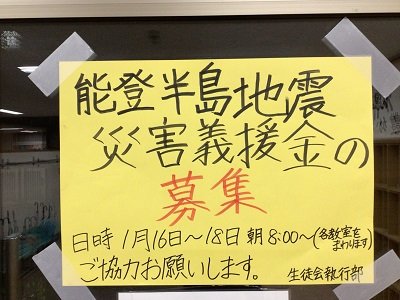 能登半島地震
災害義援金の
募集
日時 1月16日〜18日 朝8:00〜(各教室をまわります)
ご協力お願いします。 生徒会執行部